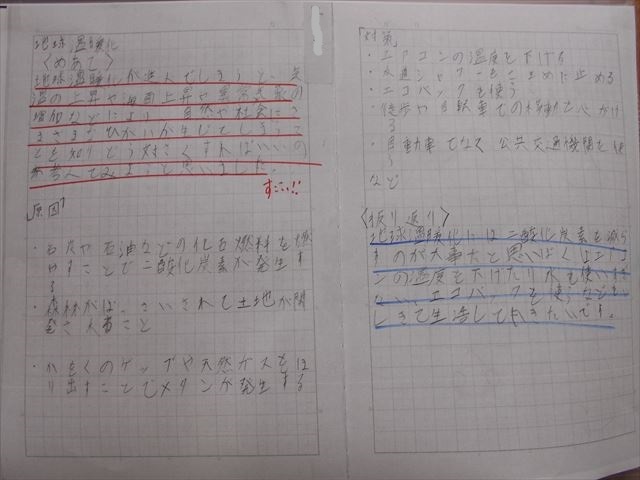 地球温暖化
〈めあて〉
地球温暖化が進んでしまうと、気
温の上昇や海面上昇や異常気象の
増加などにより、自然や社会にさ
まざまなひがいが生じてしまうこ
とを知りどう対さくすればいいの
か考えてみようと思いました。
すごい!!
「原因」
・石炭や石油などの化石燃料を燃
やすことで二酸化炭素が発生す
る
・森林がばっさいされて土地が開
発されること
・かちくのゲップや天然ガスをほ
り出すことでメタンが発生する
「対策」
・エアコンの温度を下げる
・水道シャワーをこまめに止める
・エコバックを使う
・徒歩や自転車での移動を心がけ
る
・自動車でなく公共交通機関を使
う
など
〈振り返り〉
地球温暖化には二酸化炭素を減ら
すのが大事だと思いぼくはエアコ
ンの温度を下げたり水を使いすぎ
ない、エコバックを使うなどを
しきて生活して